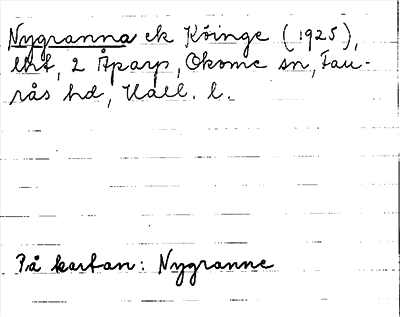 Nygranna ek Köinge (1925),
lht, 2 Åparp, Okome sn, Fau-
rås hd, Hall. l.
På kartan: Nygranne